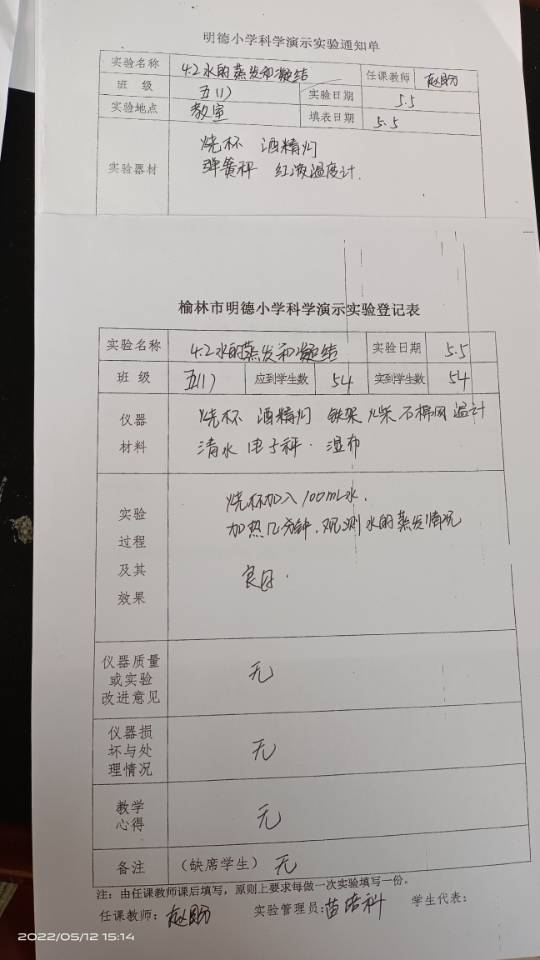 明德小学科学演示实验通知单
实验名称 4.2水的蒸发和凝结 任课教师 赵盼
班 级 五(1) 实验日期 5.5
实验地点 教室 填表日期 5.5
实验器材 烧杯 酒精灯
弹簧秤 红液温度计.
榆林市明德小学科学演示实验登记表
实验名称 4.2水的蒸发和凝结 实验日期 5.5
班 级 五(1) 应到学生数 54 实到学生数 54
仪器 烧杯 酒精灯 铁架 火柴 石棉网 温计
材料 清水 电子秤. 湿布
实验 烧杯加入100mL水.
过程 加热几分钟.观测水的蒸发情况
及其 良好.
效果
仪器质量
或实验 无
改进意见
仪器损
坏与处 无
理情况
教学 无
心得
备注 (缺席学生) 无
注:由任课教师课后填写,原则上要求每做一次实验填写一份。
任课教师:赵盼 实验管理员:苗培科 学生代表:
2022/05/12 15:14